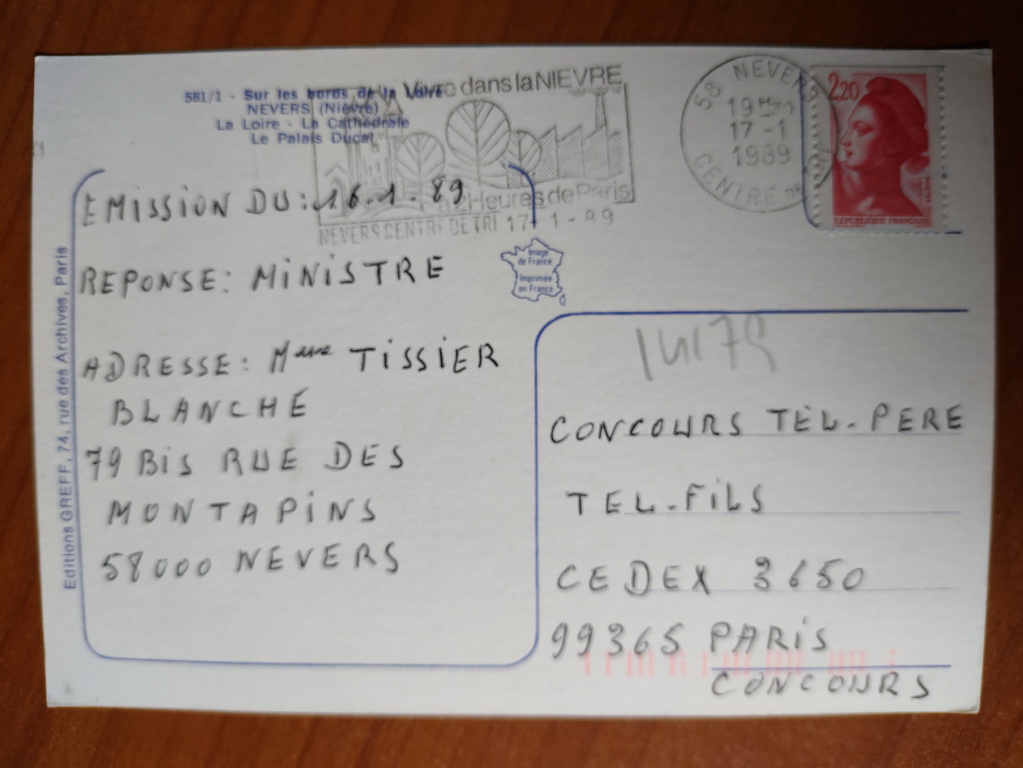 581/1 - Sur les bords de la Loire
NEVERS (Nièvre)
La Loire - La Cathédrale
Le Palais Ducal
Vivre dans la NIEVRE
Heures de Paris
NEVERS CENTRE DE TRI 17-1-89
58 NEVERS
19H
17-1
1989
CENTRE DE
2,20
POSTES
REPUBLIQUE FRANÇAISE
EMISSION DU: 16.1.89
REPONSE: MINISTRE
ADRESSE: Mme TISSIER
BLANCHE
79 BIS RUE DES
MONTAPINS
58000 NEVERS
Editions GREFF, 74, rue des Archives, Paris
Image
de France
Imprimée
en France
CONCOURS TEL. PERE
TEL. FILS
CEDEX 3650
99365 PARIS
CONCOURS